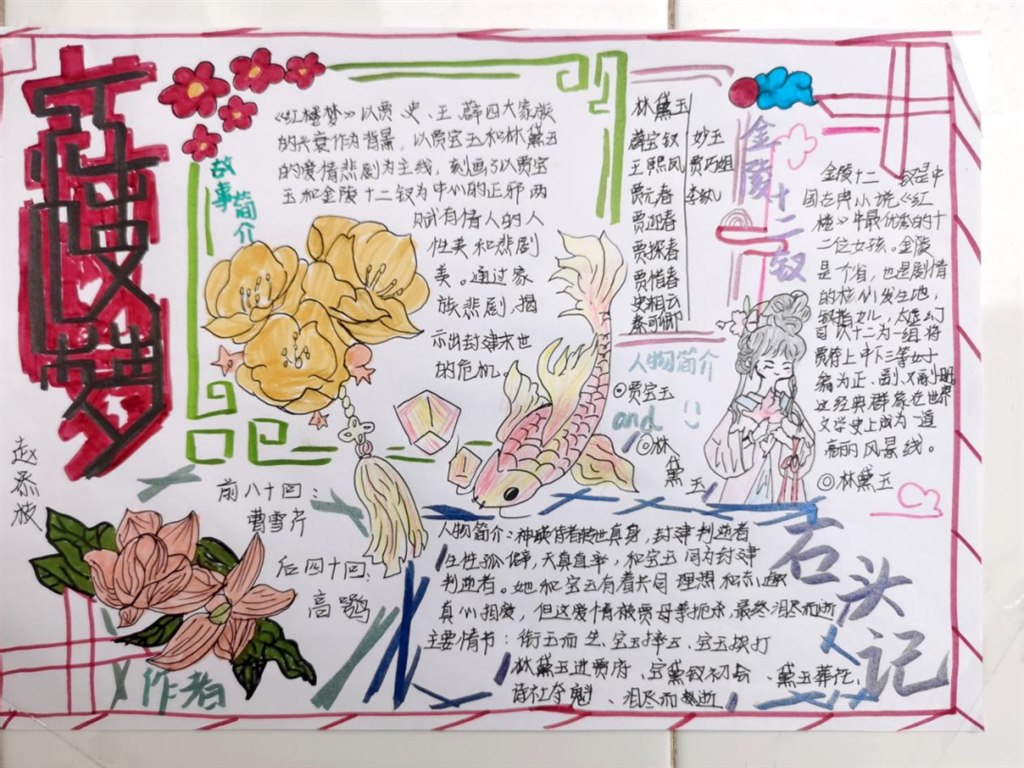 红楼梦
故事简介
《红楼梦》以贾、史、王、薛四大家族
的兴衰作为背景，以贾宝玉和林黛玉
的爱情悲剧为主线，刻画了以贾宝
玉和金陵十二钗为中心的正邪两
赋有情人的人
性美和悲剧
美。通过家
族悲剧，揭
示出封建末世
的危机。
林黛玉
薛宝钗 妙玉
王熙凤 贾巧姐
贾元春 李纨
贾迎春
贾探春
贾惜春
史湘云
秦可卿
金陵十二钗
金陵十二钗是中
国古典小说《红
楼》中最优秀的十
二位女孩。金陵
是个省，也是剧情
的核心发生地，
钗指女儿，
以十二为一组 将
上中下三等女子
编为正、副、又副册。
这经典群象在世界
文学史上成为一道
亮丽风景线。
人物简介
◎贾宝玉
and
◎林
黛
玉
◎林黛玉
赵恭被
前八十回：
曹雪芹
后四十回：
高鹗
作者
人物简介：神瑛侍者转世真身，封建判逆者
生性孤僻，天真直率，和宝玉同为封建
判逆者。她和宝玉有着共同理想和志趣
真心相爱，但这爱情被贾母等扼杀，最终泪尽而逝
主要情节：衔玉而生、宝玉摔玉、宝玉挨打
林黛玉进贾府、宝黛钗初会、黛玉葬花，
诗社夺魁、泪尽而逝
石头人记